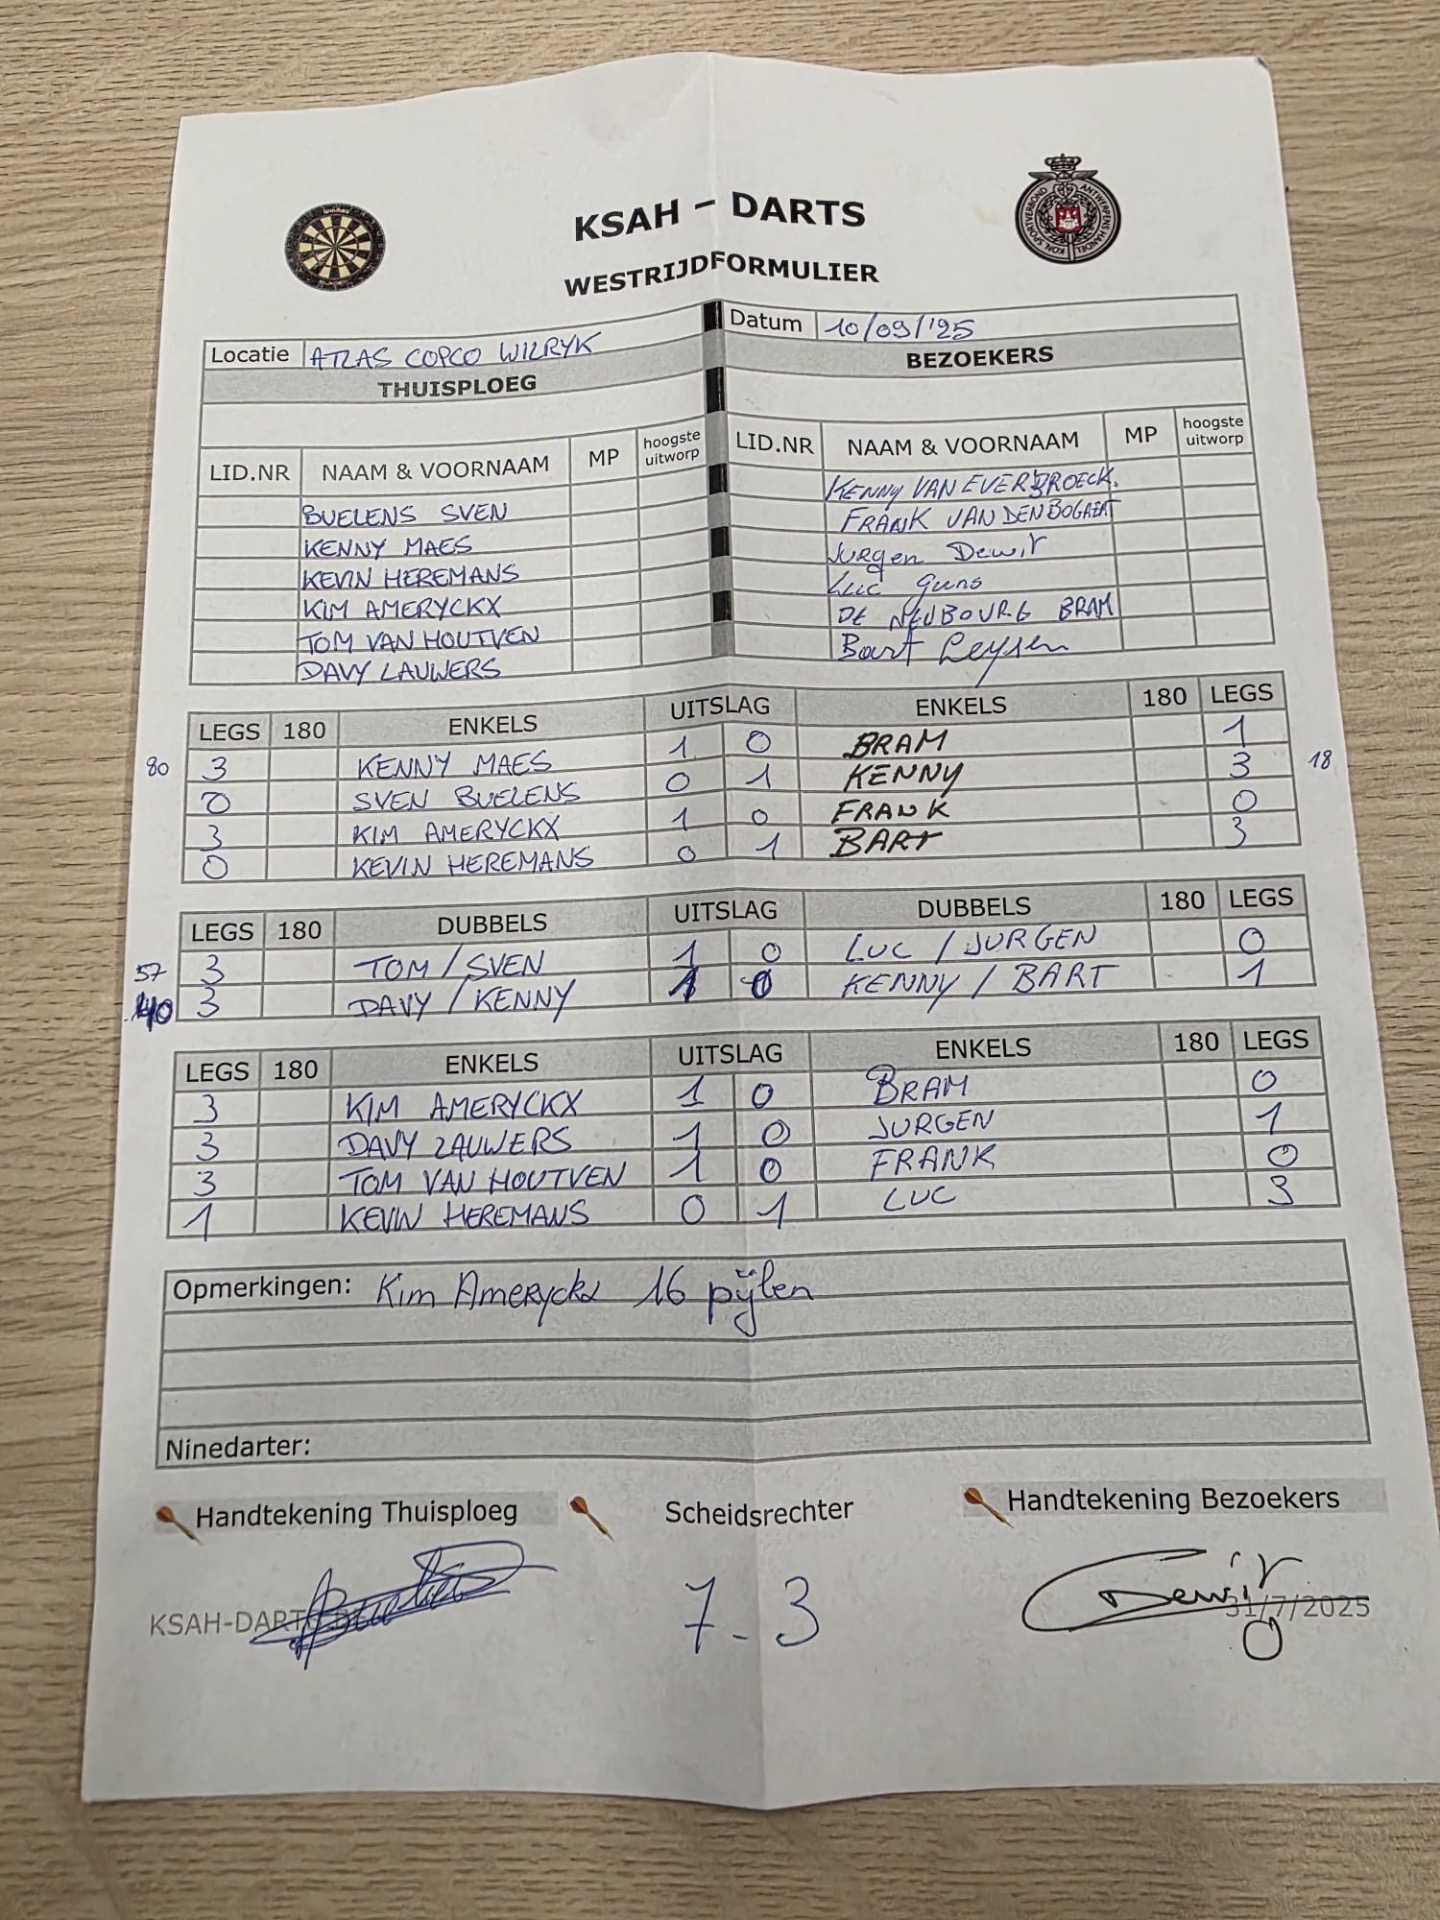 KSAH - DARTS
WESTRIJDFORMULIER
KON. SPORTVERBOND ANTWERPENS HANDEL
Locatie ATLAS COPCO WILRYK Datum 10/09/'25
THUISPLOEG BEZOEKERS
LID.NR NAAM & VOORNAAM MP hoogste uitworp LID.NR NAAM & VOORNAAM MP hoogste uitworp
BUELENS SVEN KENNY VAN EVERBROECK.
KENNY MAES FRANK VAN DEN BOGAERT
KEVIN HEREMANS Jurgen Dewit
KIM AMERYCKX Luc Guns
TOM VAN HOUTVEN DE NEUBOURG BRAM
DAVY LAUWERS Bart Leysen
LEGS 180 ENKELS UITSLAG ENKELS 180 LEGS
80 3 KENNY MAES 1 0 BRAM 1
0 SVEN BUELENS 0 1 KENNY 3 18
3 KIM AMERYCKX 1 0 FRANK 0
0 KEVIN HEREMANS 0 1 BART 3
LEGS 180 DUBBELS UITSLAG DUBBELS 180 LEGS
57 3 TOM / SVEN 1 0 LUC / JURGEN 0
40 3 DAVY / KENNY 1 0 KENNY / BART 1
LEGS 180 ENKELS UITSLAG ENKELS 180 LEGS
3 KIM AMERYCKX 1 0 BRAM 0
3 DAVY LAUWERS 1 0 JURGEN 1
3 TOM VAN HOUTVEN 1 0 FRANK 0
1 KEVIN HEREMANS 0 1 LUC 3
Opmerkingen: Kim Ameryckx 16 pijlen
Ninedarter:
Handtekening Thuisploeg Scheidsrechter Handtekening Bezoekers
KSAH-DARTS 7-3 Dewit 31/7/2025